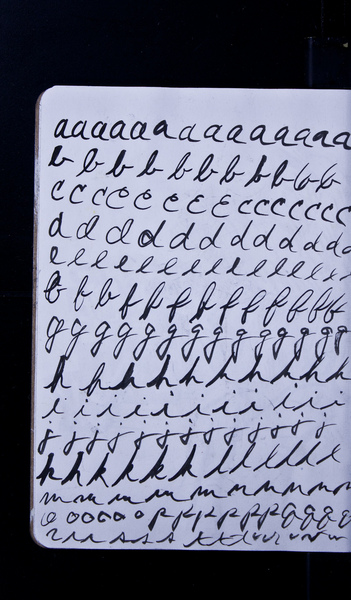 a a a a a a a a a a a a a
b b b b b b b b b b b
c c c c c c c c c c c c c c
d d d d d d d d d d d d
e e e e e e e e e e e e e
f f f f f f f f f f f f
g g g g g g g g g g g g g
h h h h h h h h h h h h
i i i i i i i i i i
j j j j j j j j j j j j
k k k k k k l l l l l
m m m m m m n n n n n
o o o o o o p p p p p p q q q q
r r r s s s t t t u u v v w